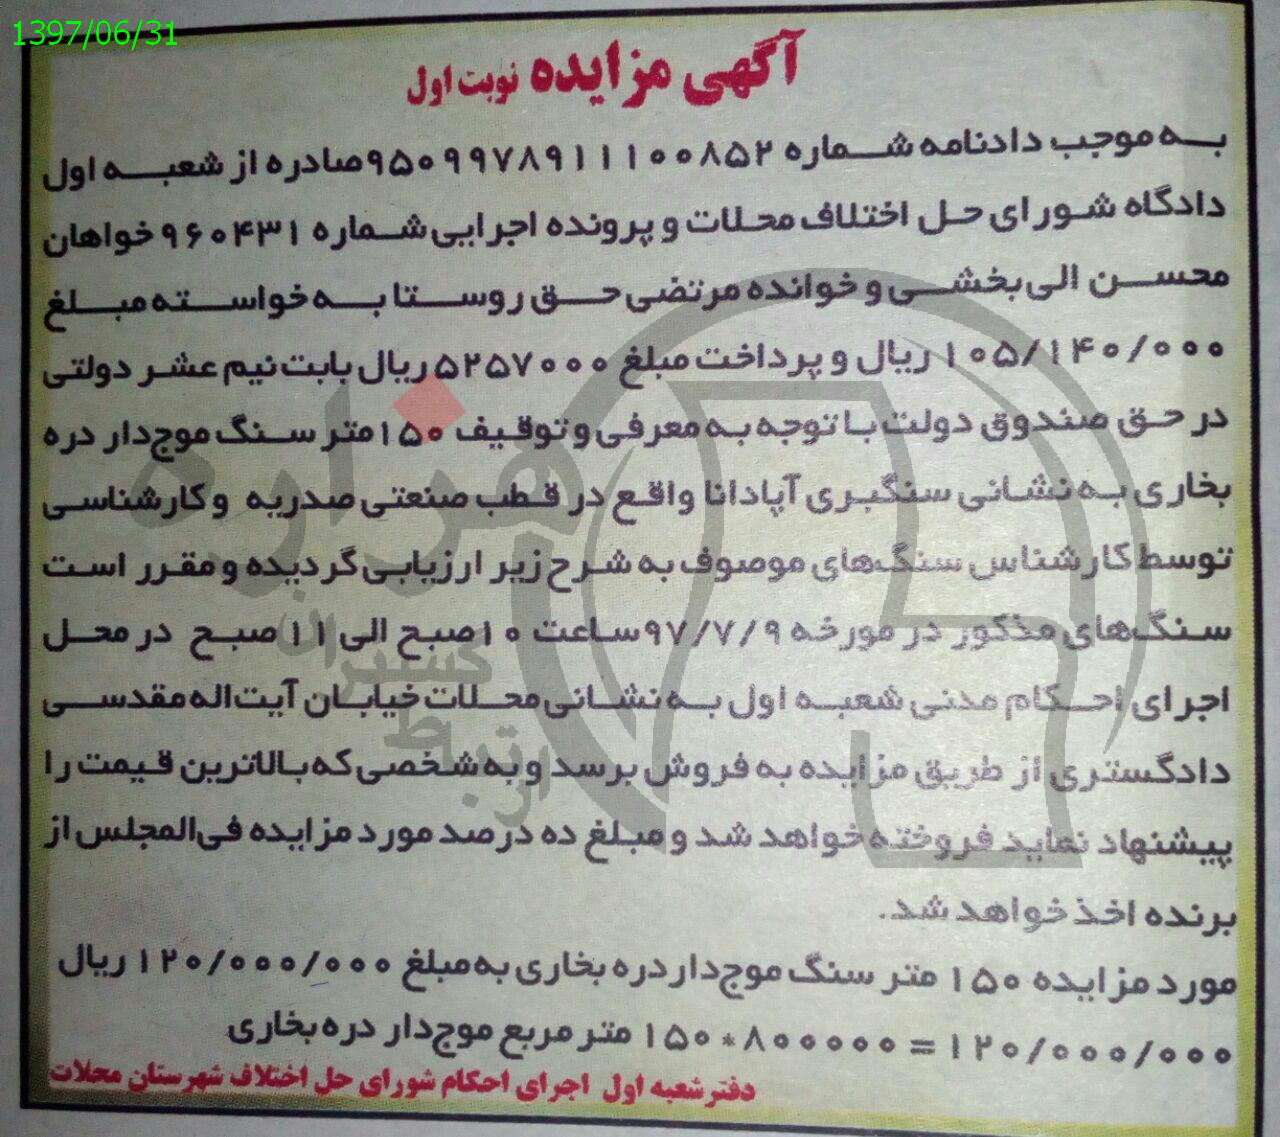 1397/06/31
آگهی مزایده نوبت اول
به موجب دادنامه شماره ۹۵۰۹۹۷۸۹۱۱۱۰۰۸۵۲صادره از شعبه اول
دادگاه شورای حل اختلاف محلات و پرونده اجرایی شماره ۹۶۰۴۳۱ خواهان
محسن الی بخشی و خوانده مرتضی حق روستا به خواسته مبلغ
۱۰۵/۱۴۰/۰۰۰ ریال و پرداخت مبلغ ۵۲۵۷۰۰۰ریال بابت نیم عشر دولتی
در حق صندوق دولت با توجه به معرفی و توقیف ۱۵۰متر سنگ موج‌دار دره
بخاری به نشانی سنگبری آپادانا واقع در قطب صنعتی صدریه و کارشناسی
توسط کارشناس سنگ‌های موصوف به شرح زیر ارزیابی گردیده و مقرر است
سنگ‌های مذکور در مورخه ۹۷/۷/۹ساعت ۱۰صبح الی ۱۱صبح در محل
اجرای احکام مدنی شعبه اول به نشانی محلات خیابان آیت‌اله مقدسی
دادگستری از طریق مزایده به فروش برسد و به شخصی که بالاترین قیمت را
پیشنهاد نماید فروخته خواهد شد و مبلغ ده درصد مورد مزایده فی‌المجلس از
برنده اخذ خواهد شد.
مورد مزایده ۱۵۰ متر سنگ موج‌دار دره بخاری به مبلغ ۱۲۰/۰۰۰/۰۰۰ ریال
۱۲۰/۰۰۰/۰۰۰ = ۸۰۰۰۰۰*۱۵۰ متر مربع موج‌دار دره بخاری
دفتر شعبه اول اجرای احکام شورای حل اختلاف شهرستان محلات
هزاره
گستران
ارتباط